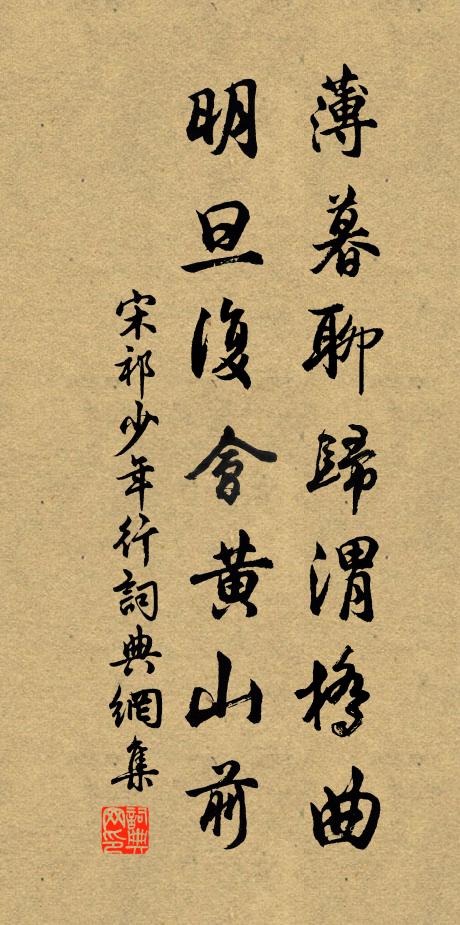 薄暮聊歸渭橋曲
明旦復會黃山前
宋祁少年行詞典網集
詞典網印